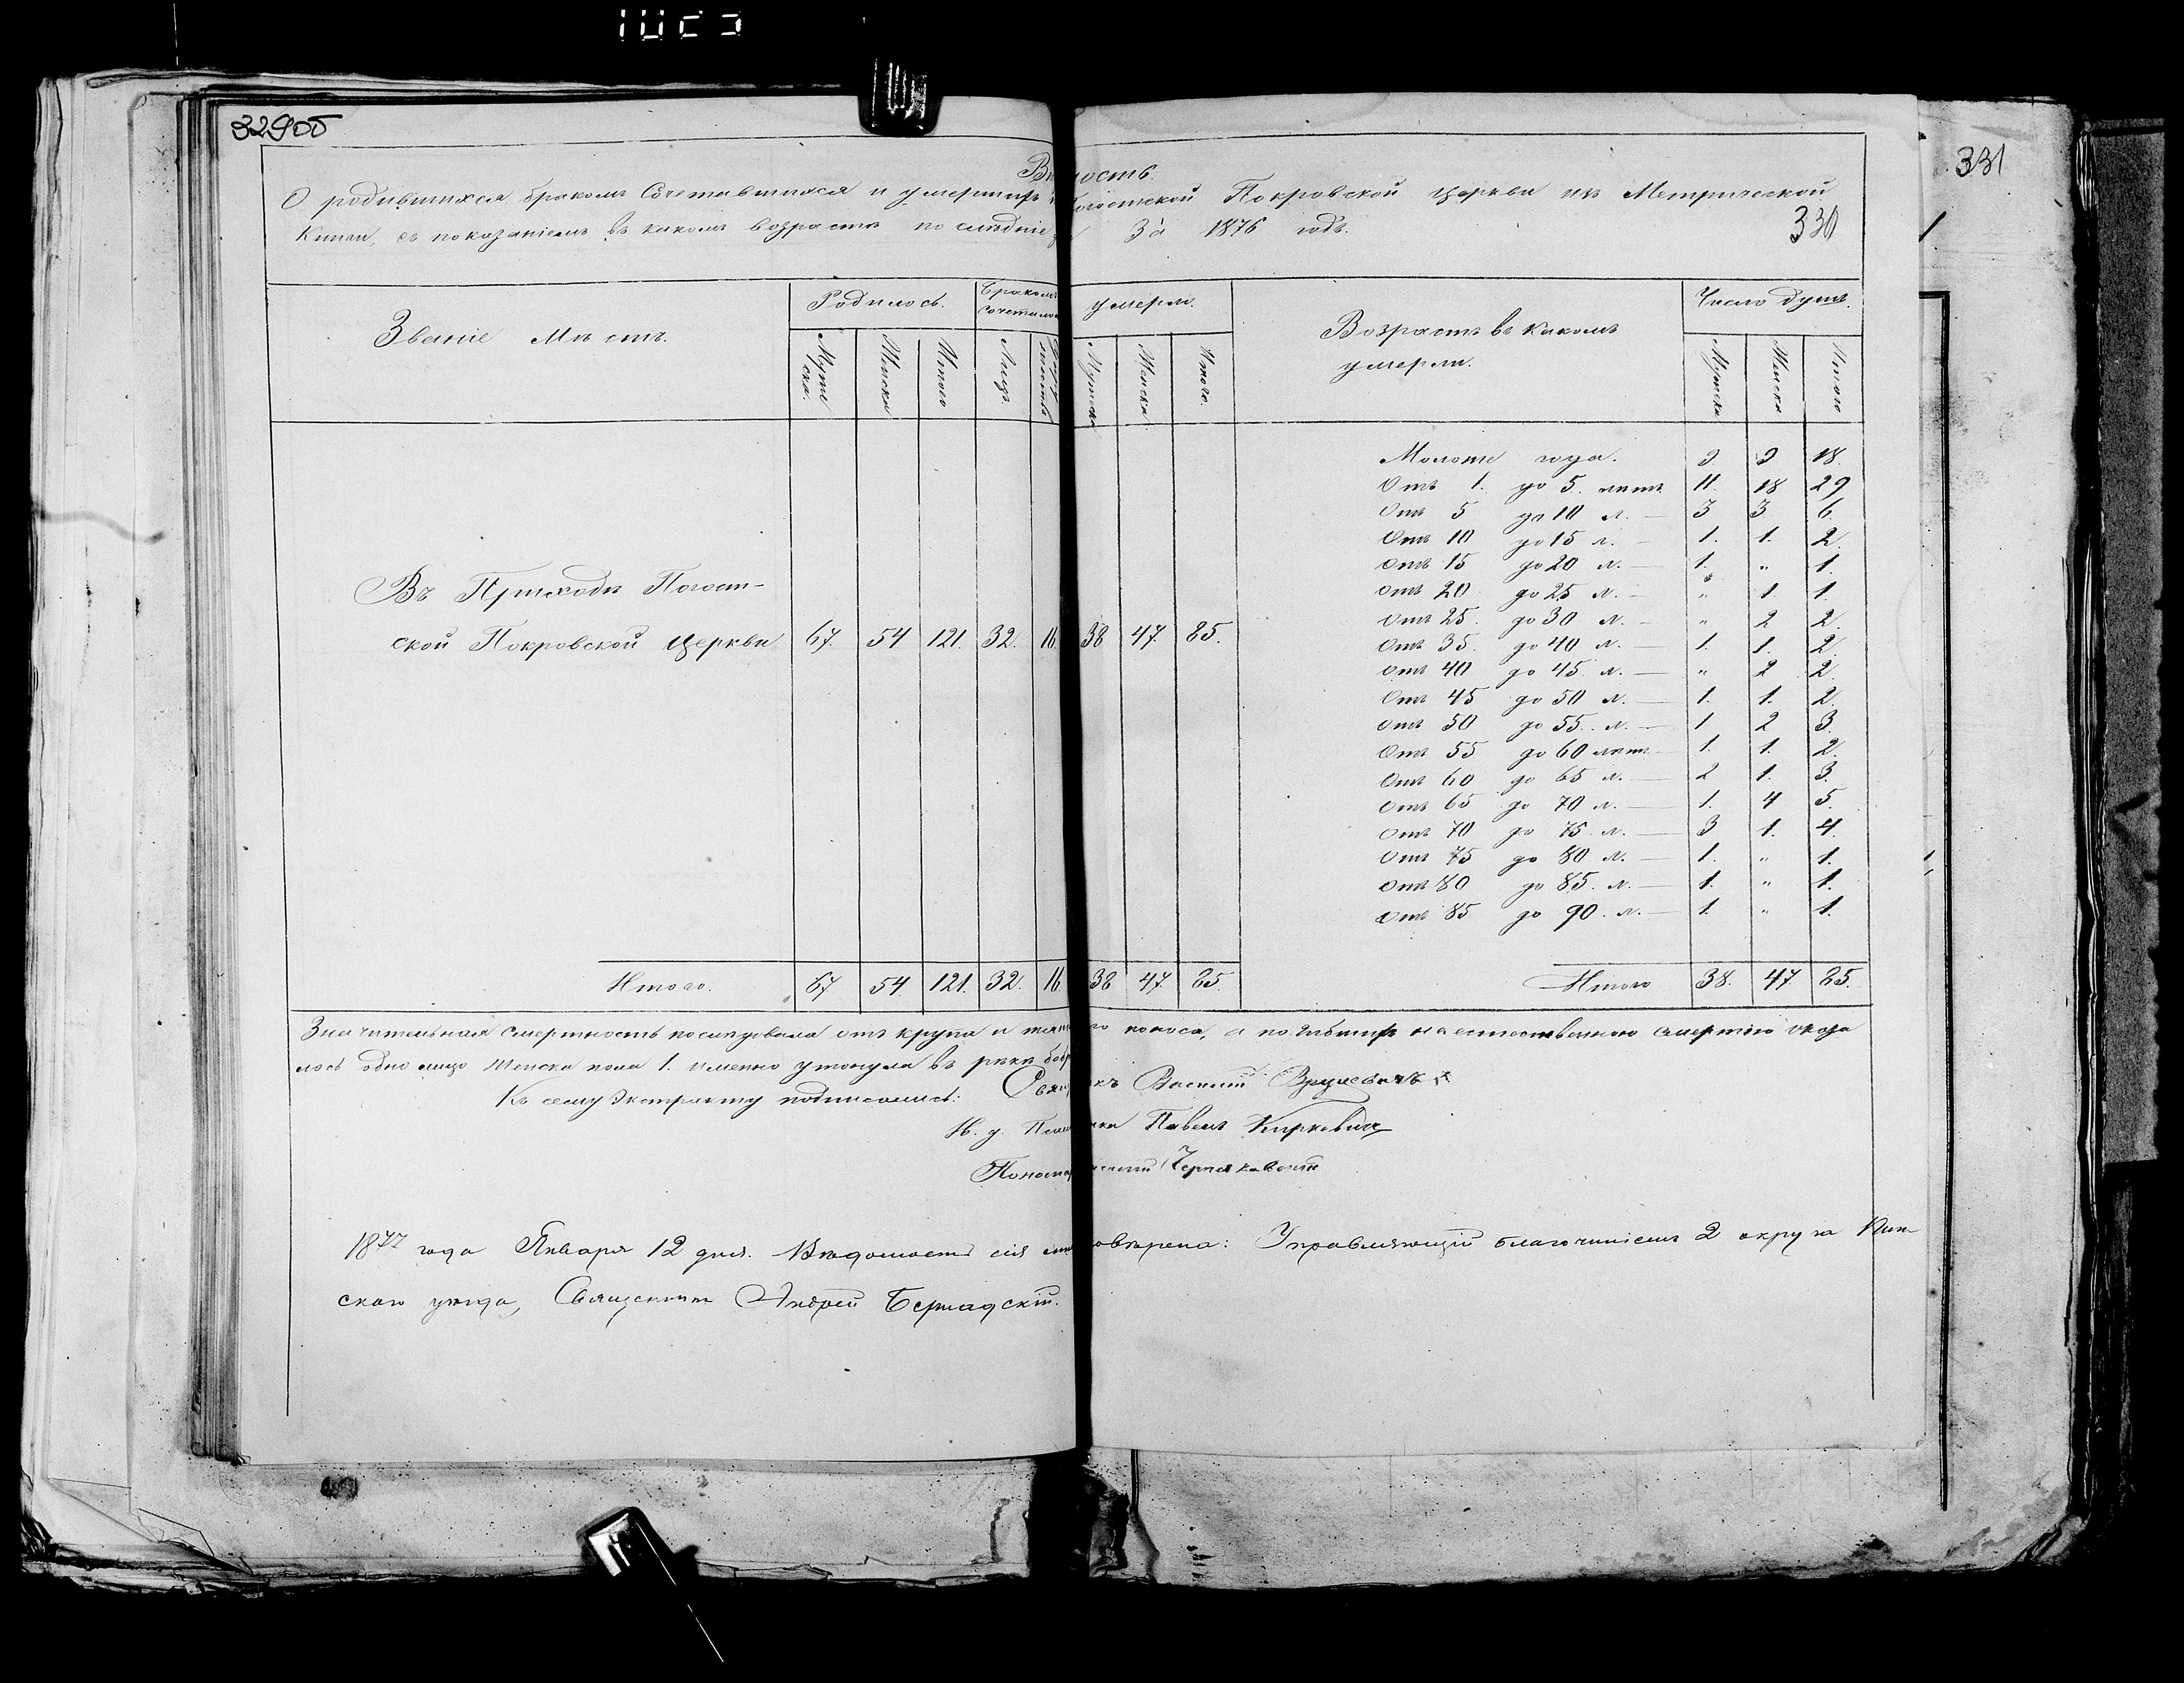 329об
331
330
О родившихся бракомъ Сочетавшихся и умершихъ Покровской церкви изъ Метрической
Книги, съ показаніемъ въ какомъ возрастѣ За 1876 годъ.
Званіе Мѣстъ.
Родилось.
Бракомъ
умерли.
Возрастъ въ какомъ
умерли.
Число душъ.
Мужеска.
Женска
Итого
Лицъ
Мужеска
Женска
Итого.
Мужеска
Женска
Итого
Въ Приходѣ Погост-
ской Покровской Церкви 67. 54 121. 32. 16. 38 47. 85.
Моложе года. 9 9 18.
Отъ 1. до 5. лѣтъ 11. 18 29
Отъ 5 до 10 л. — 3 3 6.
Отъ 10 до 15 л. — 1. 1. 2.
Отъ 15 до 20 л. — 1. " 1.
Отъ 20 до 25 л. — " 1 1.
Отъ 25. до 30 л. — " 2 2.
Отъ 35. до 40 л. — 1. 1. 2.
Отъ 40 до 45. л. — " 2 2.
Отъ 45 до 50 л. — 1. 1. 2.
Отъ 50 до 55. л. — 1 2 3.
Отъ 55 до 60 лѣтъ — 1. 1. 2.
Отъ 60 до 65 л. — 2 1. 3.
Отъ 65 до 70 л. — 1. 4 5.
Отъ 70 до 75. л. — 3 1. 4.
Отъ 75 до 80 л. — 1. " 1.
Отъ 80 до 85. л. — 1. " 1.
Отъ 85 до 90. л. — 1. " 1.
Итого. 67 54. 121. 32. 16. 38 47. 85.
Итого 38. 47. 85.
Значительная смертность послѣдовала отъ крупа и поноса, а смертію оказа
лось одно лицо женска пола 1. именно утонула въ рѣкѣ
Къ сему Экстракту подписались: Василій
И. д. Павелъ Киркевичъ
1877 года Января 12 дня. Вѣдомость сія Управляющій благочиніемъ 2 округа Пин-
скаго уѣзда, Священникъ Андрей Бернадскій.